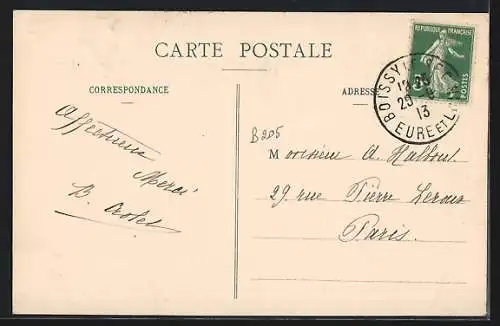 CARTE POSTALE
CORRESPONDANCE
ADRESSE
REPUBLIQUE FRANÇAISE
POSTES
5
BOISSY
12
25
13
EURE ET L
B205
Affectueux
Merci
B.
Monsieur A.
29 rue Pierre Leroux
Paris.